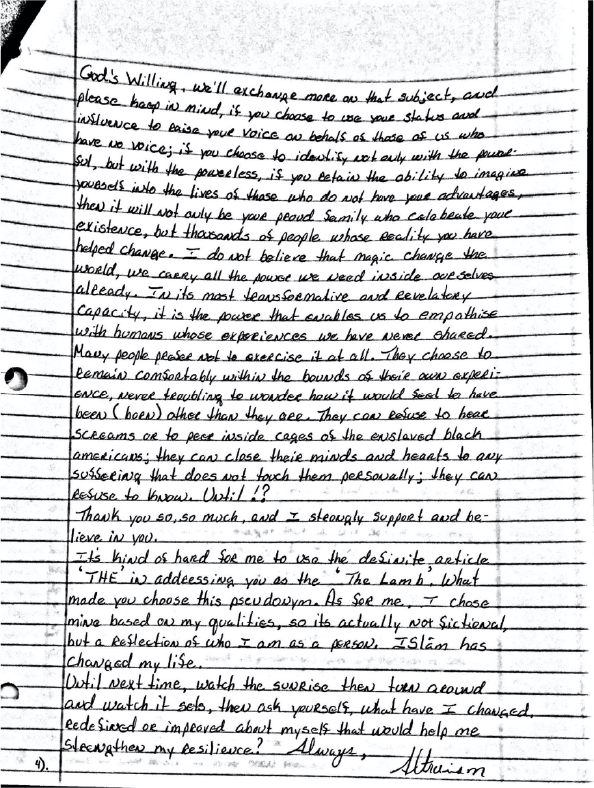 God's Willing, we'll exchange more on that subject, and
please keep in mind, if you choose to use your status and
influence to raise your voice on behalf of those of us who
have no voice; if you choose to identify not only with the power-
ful, but with the powerless, if you retain the ability to imagine
yourself into the lives of those who do not have your advantages,
then it will not only be your proud family who calabeate your
existence, but thousands of people whose reality you have
helped change. I do not believe that magic change the
world, we carry all the power we need inside ourselves
already. In its most transformative and revelatory
capacity, it is the power that enables us to empathise
with humans whose experiences we have never shared.
Many people prefer not to exercise it at all. They choose to
remain comfortably within the bounds of their own experi-
ence, never troubling to wonder how it would feel to have
been (born) other than they are. They can refuse to hear
screams or to peer inside cages of the enslaved black
americans; they can close their minds and hearts to any
suffering that does not touch them personally; they can
refuse to know. Until !?
Thank you so, so much, and I strongly support and be-
lieve in you.
It's kind of hard for me to use the definite article
'THE' in addressing you as the 'The Lamb'. What
made you choose this pseudonym. As for me, I chose
mine based on my qualities, so its actually not fictional,
but a reflection of who I am as a person. ISlām has
changed my life.
Until next time, watch the sunrise then turn around
and watch it sets, then ask yourself, what have I changed,
redefined or improved about myself that would help me
strengthen my resilience? Always,
Altruism
4).